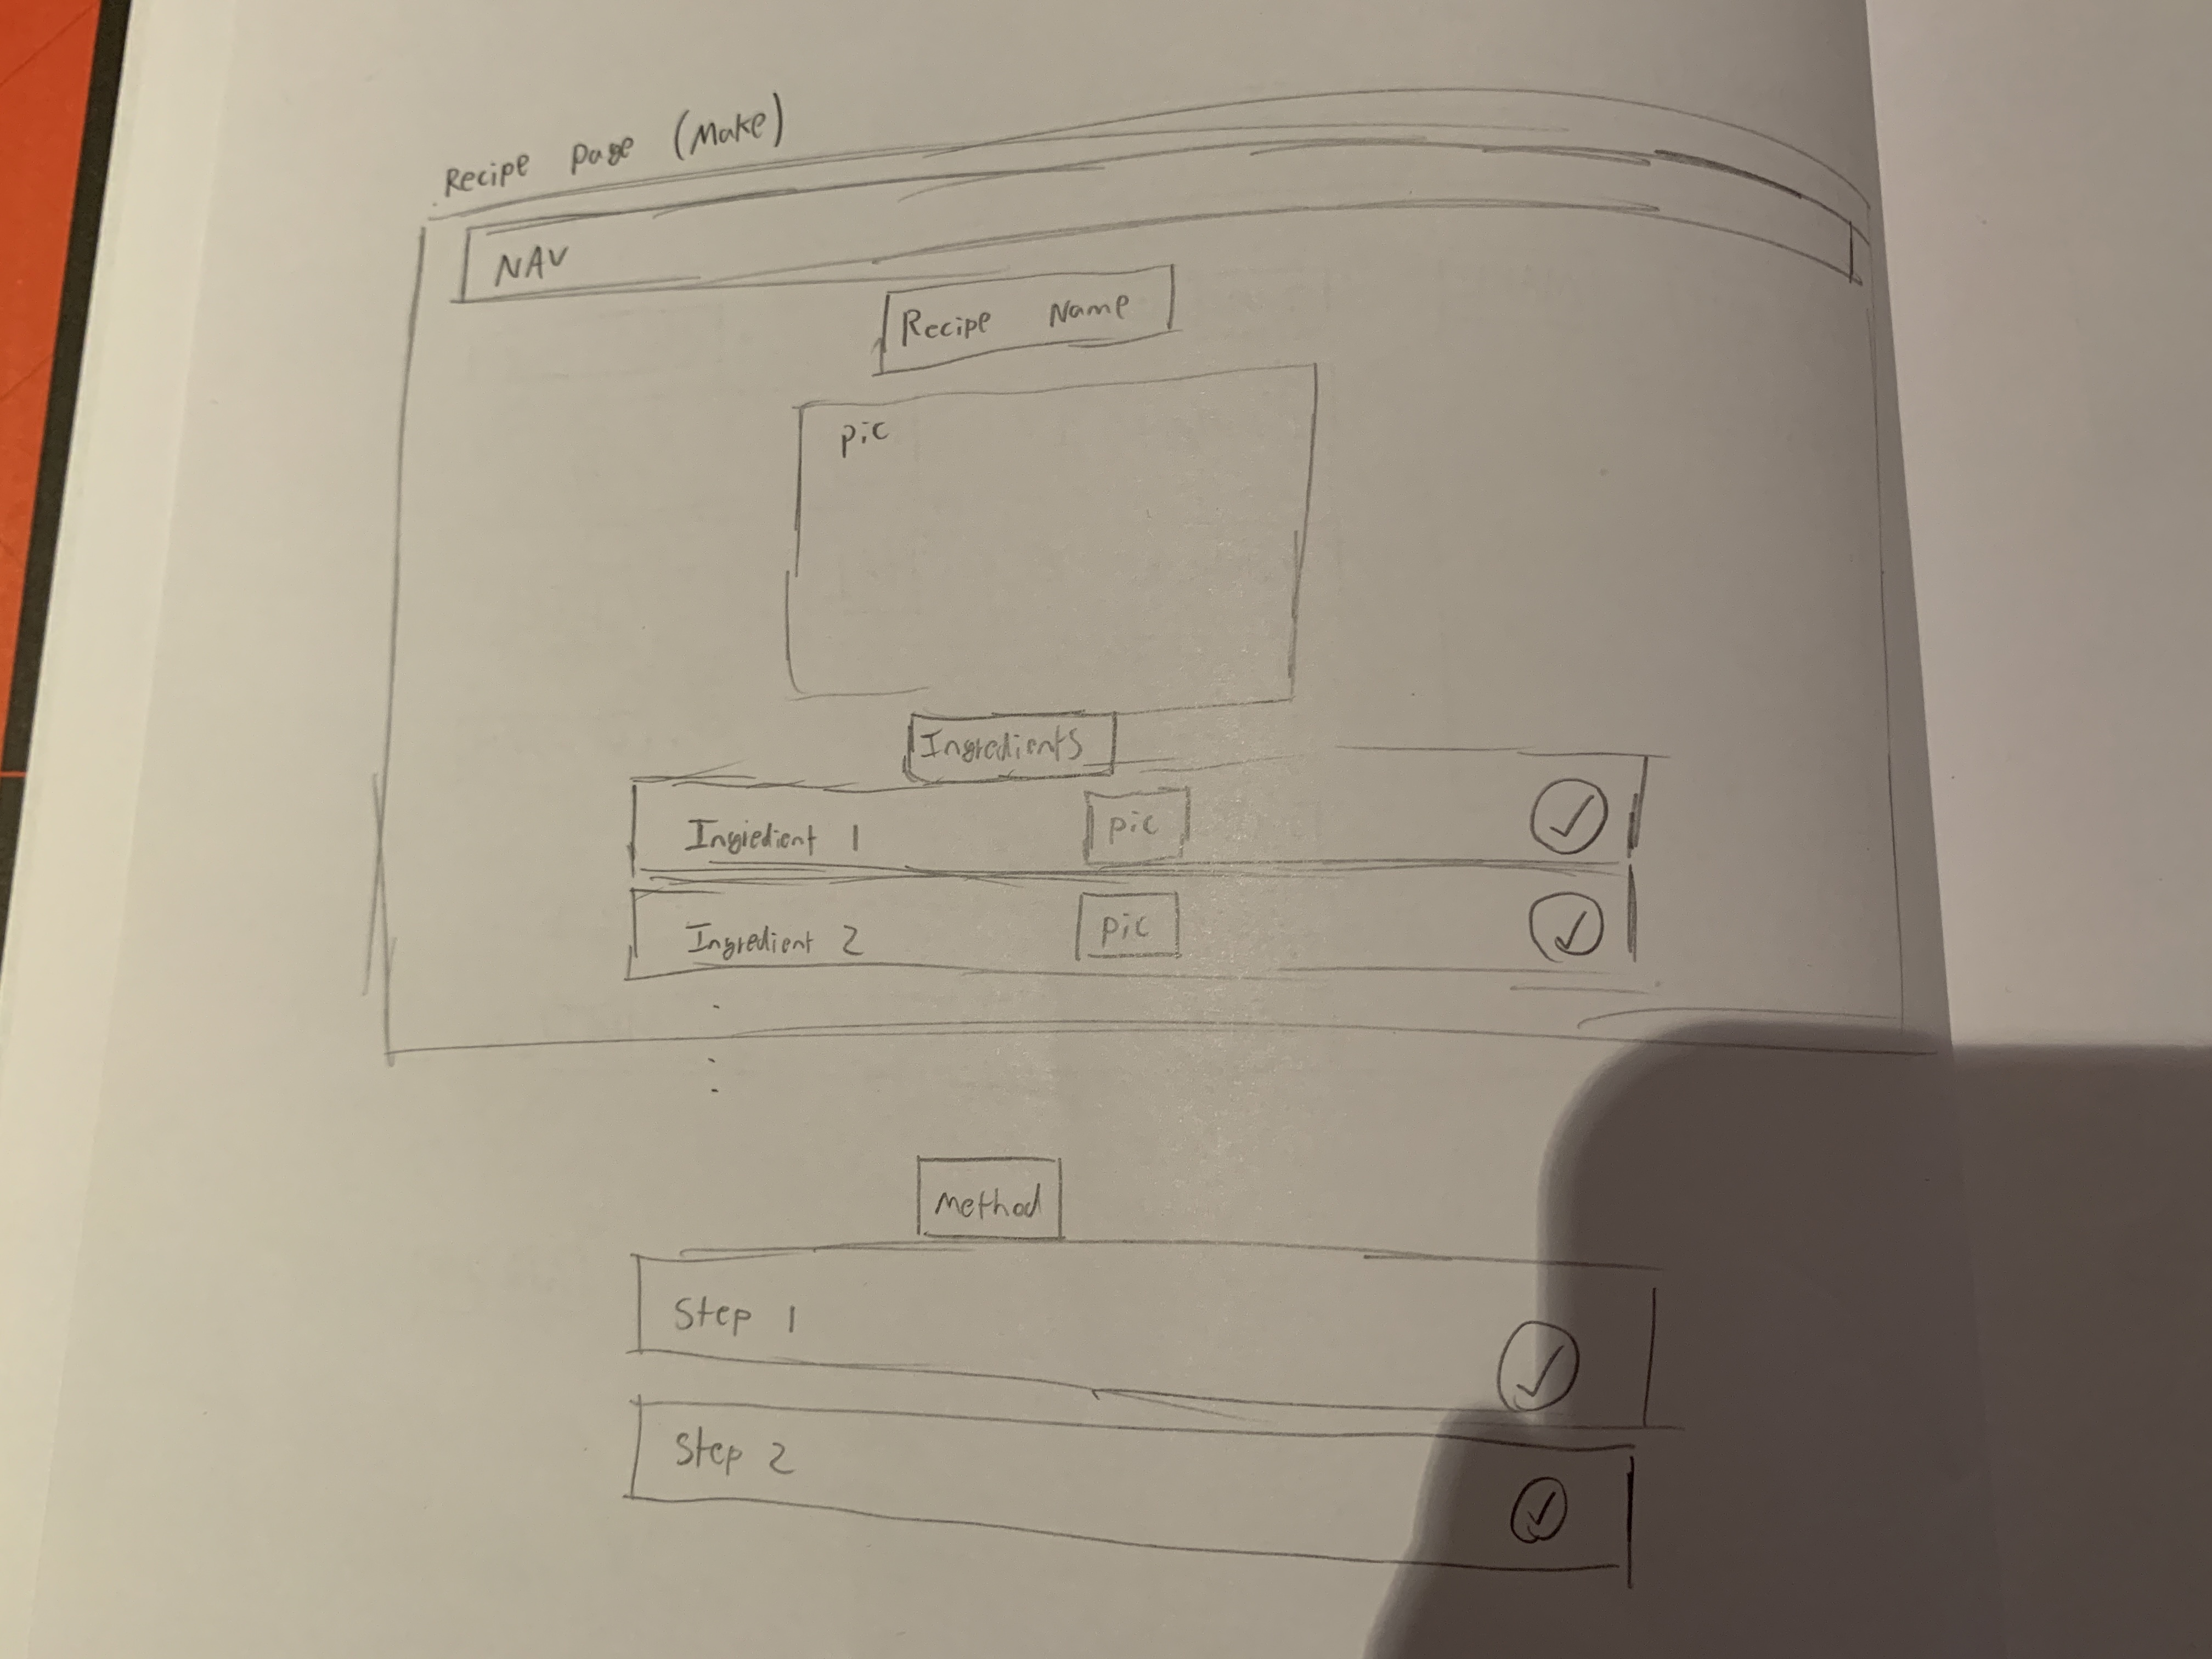 Recipe page (Make)
NAV
Recipe Name
pic
Ingredients
Ingredient 1 pic
Ingredient 2 pic
Method
Step 1
Step 2